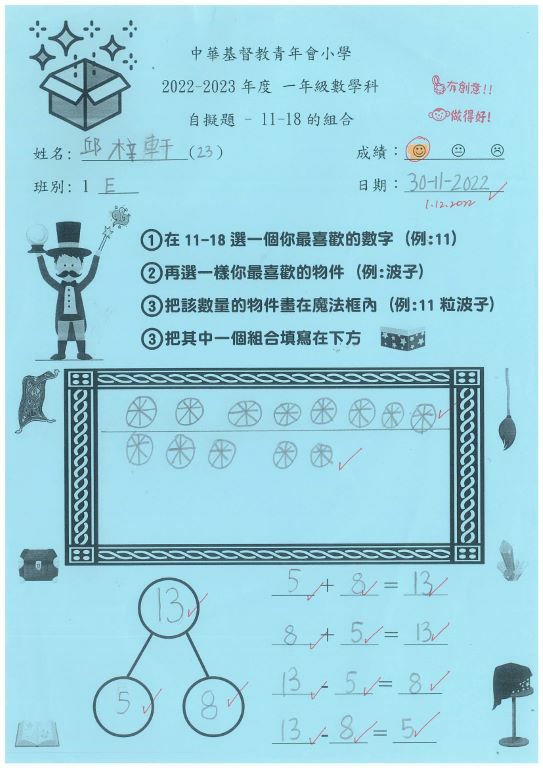 中華基督教青年會小學
2022-2023 年度 一年級數學科
有創意!!
自擬題 - 11-18 的組合
做得好!
姓名: 邱梓軒 (23)
成績:
班別: 1 E
日期: 30-11-2022
1.12.2022
①在 11-18 選一個你最喜歡的數字 (例:11)
②再選一樣你最喜歡的物件 (例:波子)
③把該數量的物件畫在魔法框內 (例:11 粒波子)
③把其中一個組合填寫在下方
13
5
8
5 + 8 = 13
8 + 5 = 13
13 - 5 = 8
13 - 8 = 5